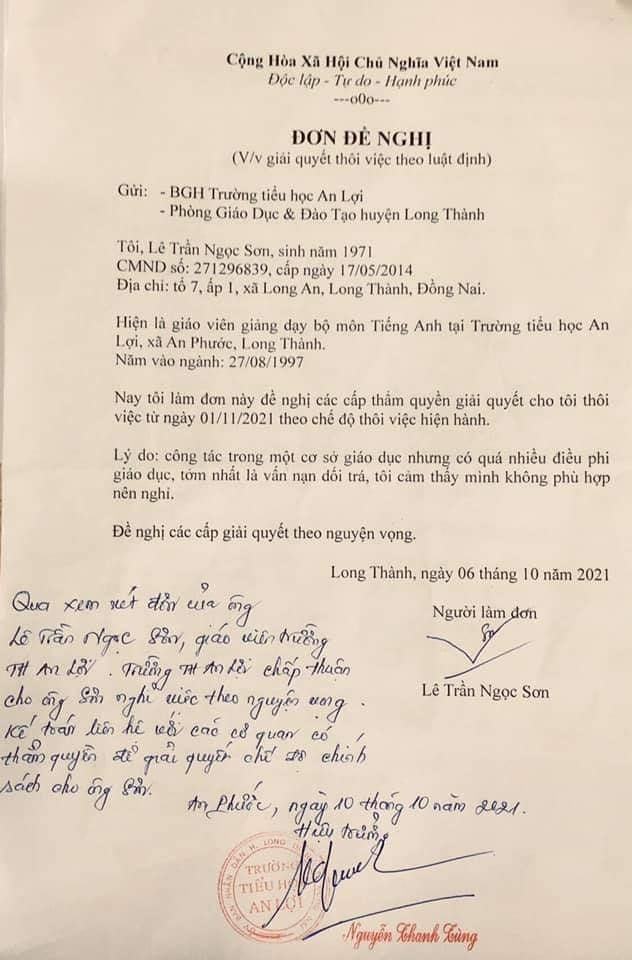 Cộng Hòa Xã Hội Chủ Nghĩa Việt Nam
Độc lập - Tự do - Hạnh phúc
---o0o---
ĐƠN ĐỀ NGHỊ
(V/v giải quyết thôi việc theo luật định)
Gửi: - BGH Trường tiểu học An Lợi
- Phòng Giáo Dục & Đào Tạo huyện Long Thành
Tôi, Lê Trần Ngọc Sơn, sinh năm 1971
CMND số: 271296839, cấp ngày 17/05/2014
Địa chỉ: tổ 7, ấp 1, xã Long An, Long Thành, Đồng Nai.
Hiện là giáo viên giảng dạy bộ môn Tiếng Anh tại Trường tiểu học An
Lợi, xã An Phước, Long Thành.
Năm vào ngành: 27/08/1997
Nay tôi làm đơn này đề nghị các cấp thẩm quyền giải quyết cho tôi thôi
việc từ ngày 01/11/2021 theo chế độ thôi việc hiện hành.
Lý do: công tác trong một cơ sở giáo dục nhưng có quá nhiều điều phi
giáo dục, tởm nhất là vấn nạn dối trá, tôi cảm thấy mình không phù hợp
nên nghỉ.
Đề nghị các cấp giải quyết theo nguyện vọng.
Long Thành, ngày 06 tháng 10 năm 2021
Người làm đơn
Lê Trần Ngọc Sơn
Qua xem xét đơn của ông
Lê Trần Ngọc Sơn, giáo viên trường
TH An Lợi. Trường TH An Lợi chấp thuận
cho ông Sơn nghỉ việc theo nguyện vọng.
Kế toán liên hệ với các cơ quan có
thẩm quyền để giải quyết chế độ chính
sách cho ông Sơn.
An Phước, ngày 10 tháng 10 năm 2021.
Hiệu trưởng
ỦY BAN NHÂN DÂN H. LONG
TRƯỜNG
TIỂU HỌC
AN LỢI
Nguyễn Thanh Tùng